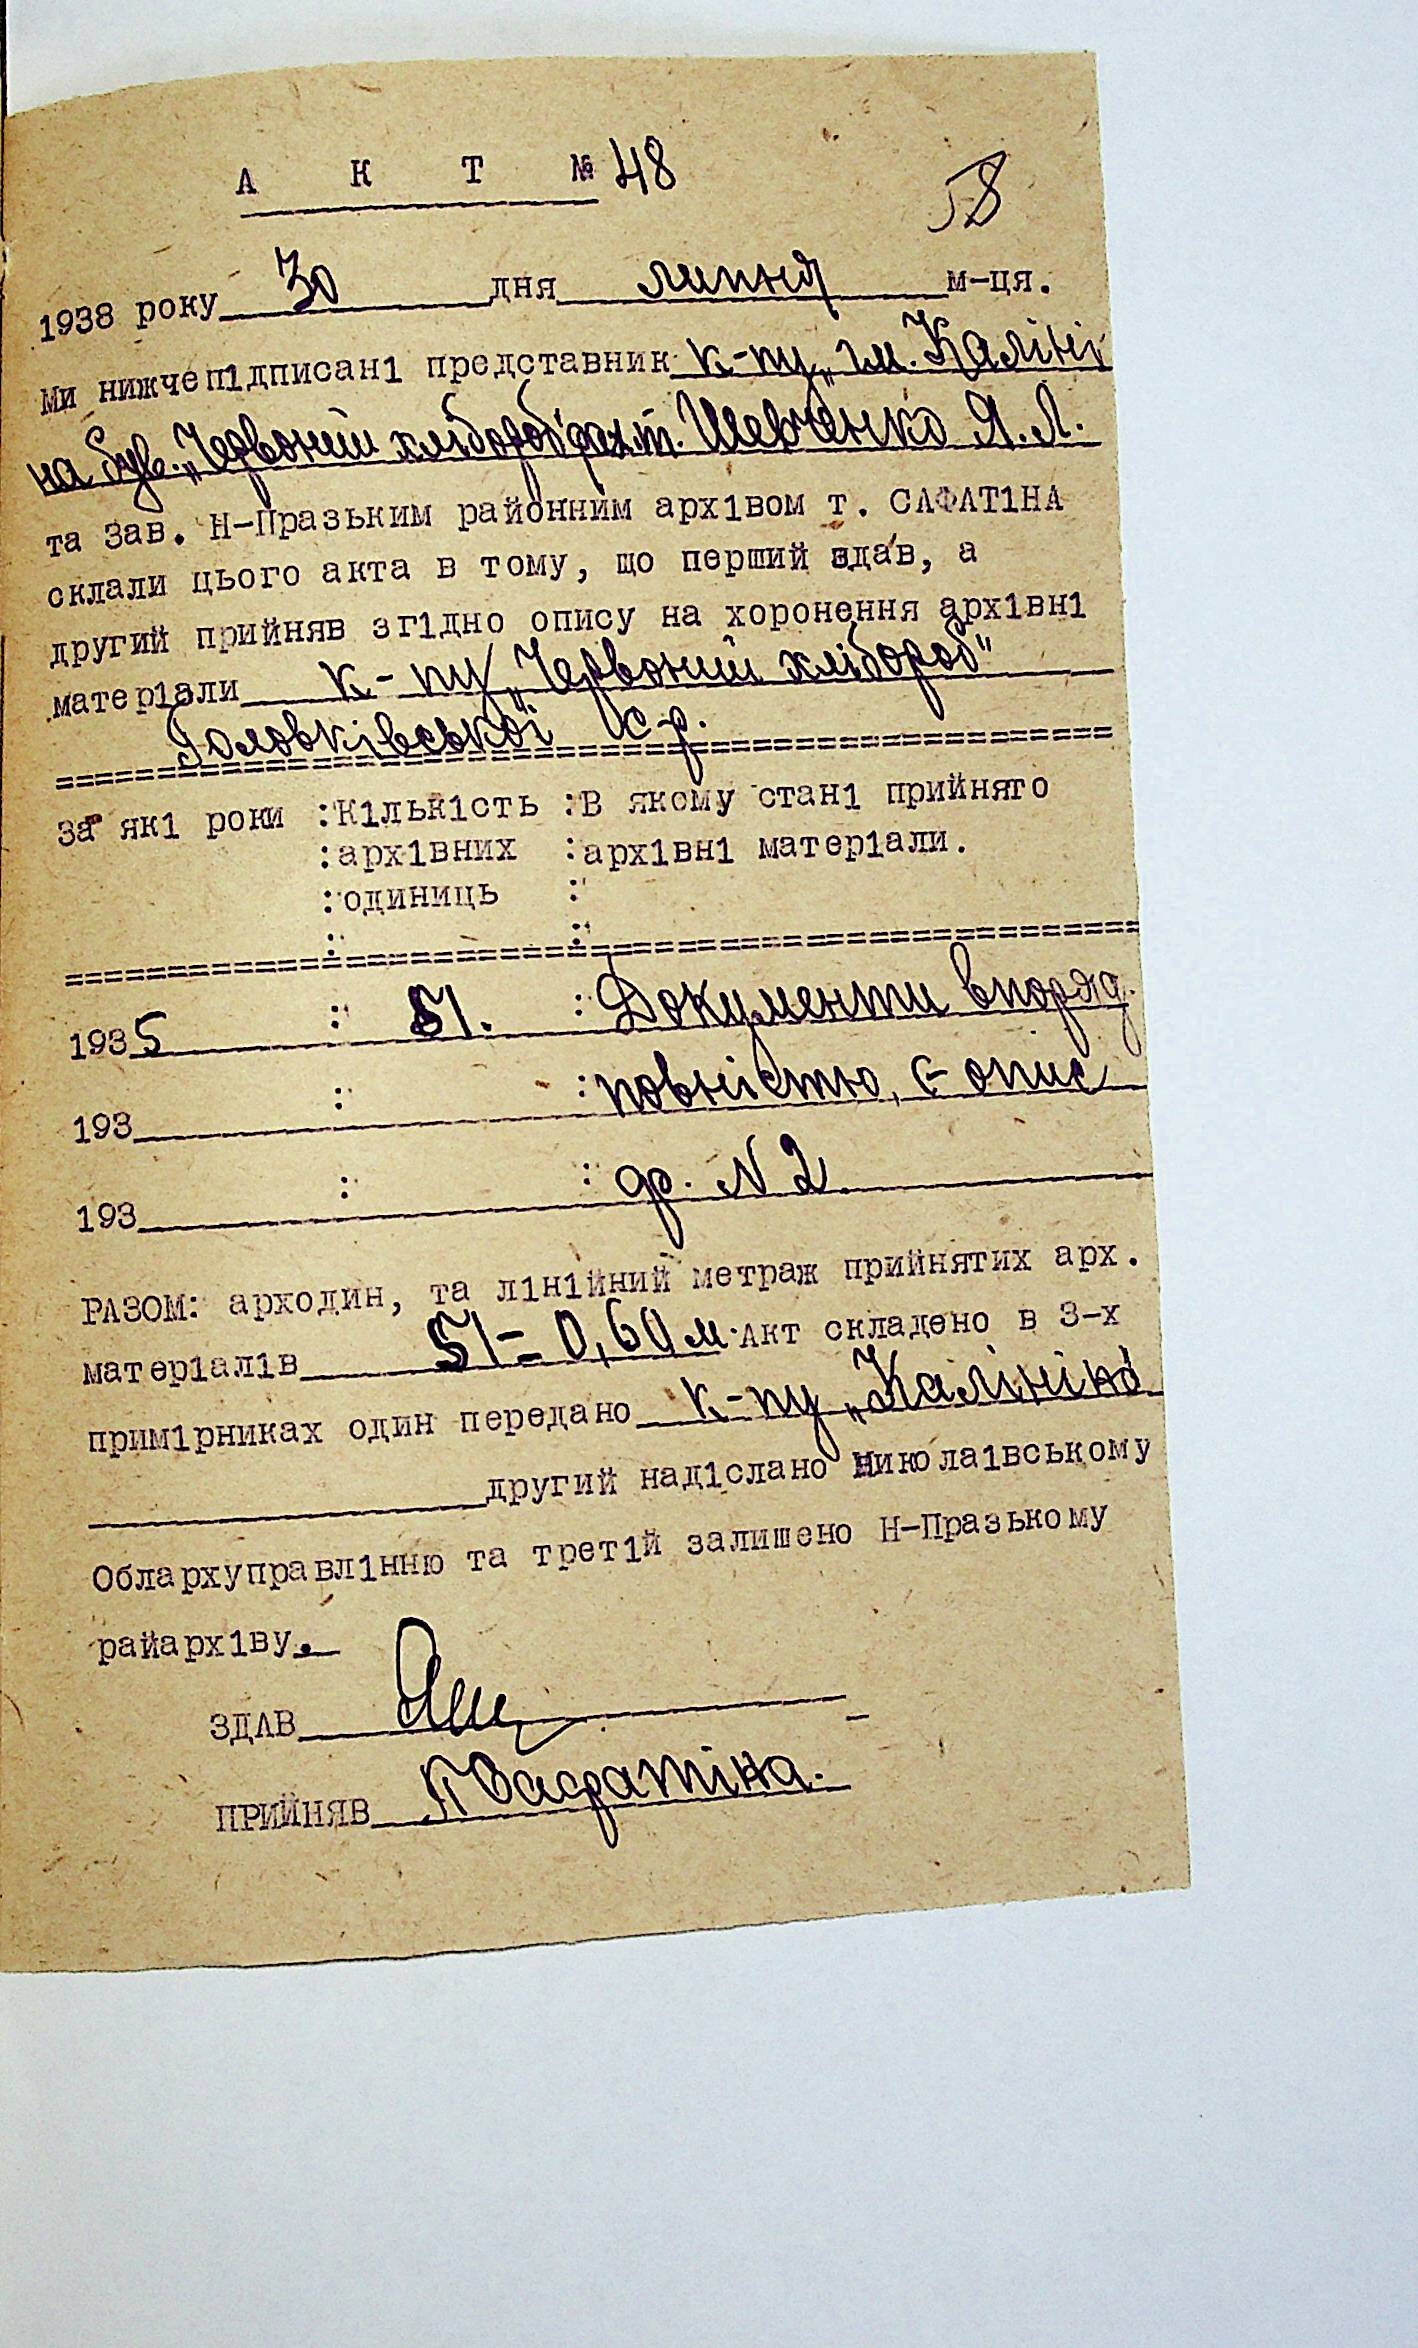 А К Т № 48
58
1938 року 30 дня липня м-ця.
ми нижчепiдписанi представник к-пу „iм. Калінi
на був. „Червоний хлібороб" рах. т. Шевченко Я. Л.
та Зав. Н-Празьким районним архiвом т. САФАТIНА
склали цього акта в тому, що перший здав, а
другий прийняв згiдно опису на хоронення архiвнi
матерiали к-пу „Червоний хлібороб"
Головківської с-р.
За якi роки :Кiлькiсть :В якому станi прийнято
:архiвних :архiвнi матерiали.
:одиниць :
: :
1935 : 51. : Документи впоряд.
193 : : повністю, є опис
193 : : ф. N 2
РАЗОМ: арходин, та лiнiйний метраж прийнятих арх.
матерiалiв 51 = 0,60 м. Акт складено в 3-х
примiрниках один передано к-пу „Калініна
другий надiслано Николаiвському
Обларху­правлiнню та третiй залишено Н-Празькому
райархiву.
ЗДАВ
ПРИЙНЯВ П Сафатіна.